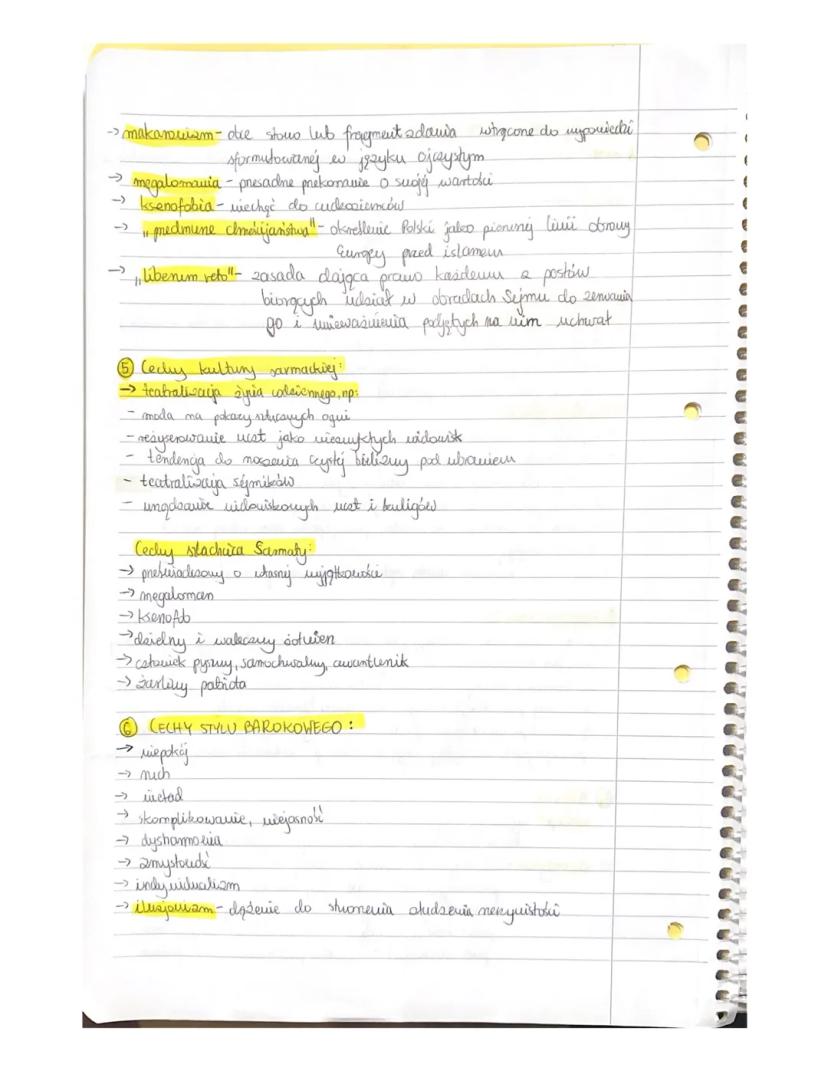 → makaronizm - obce słowo lub fragment zdania wtrącone do wypowiedzi
sformułowanej w języku ojczystym
→ megalomania - przesadne przekonanie o swojej wartości
→ ksenofobia - niechęć do cudzoziemców
→ "przedmurze chrześcijaństwa" - określenie Polski jako pierwszej linii obrony
Europy przed islamem
→ "liberum veto" - zasada dająca prawo każdemu z posłów
biorących udział w obradach Sejmu do zerwania
go i unieważnienia podjętych na nim uchwał
⑤ Cechy kultury sarmackiej:
→ teatralizacja życia codziennego, np:
- moda na pokazy sztucznych ogni
- reżyserowanie uczt jako niezwykłych widowisk
- tendencja do noszenia czystej bielizny pod ubraniem
- teatralizacja sejmików
- urządzanie widowiskowych uczt i kuligów
Cechy szlachcica Sarmaty:
→ przeświadczony o własnej wyjątkowości
→ megaloman
→ ksenofob
→ dzielny i waleczny żołnierz
→ człowiek pyszny, samochwalny, awanturnik
→ żarliwy patriota
⑥ CECHY STYLU BAROKOWEGO:
→ niepokój
→ ruch
→ nieład
→ skomplikowanie, niejasność
→ dysharmonia
→ zmysłowość
→ indywidualizm
→ iluzjonizm - dążenie do stworzenia złudzenia rzeczywistości